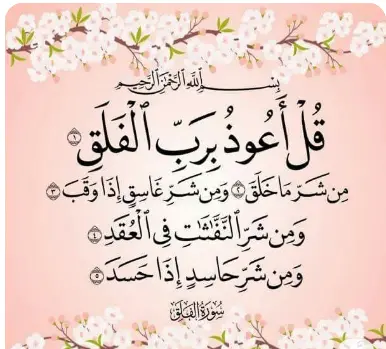 بِسْمِ ٱللَّهِ ٱلرَّحْمَٰنِ ٱلرَّحِيمِ
قُلْ أَعُوذُ بِرَبِّ ٱلْفَلَقِ ١
مِن شَرِّ مَا خَلَقَ ٢ وَمِن شَرِّ غَاسِقٍ إِذَا وَقَبَ ٣
وَمِن شَرِّ ٱلنَّفَّٰثَٰتِ فِي ٱلْعُقَدِ ٤
وَمِن شَرِّ حَاسِدٍ إِذَا حَسَدَ ٥
سُورَةُ ٱلْفَلَقِ